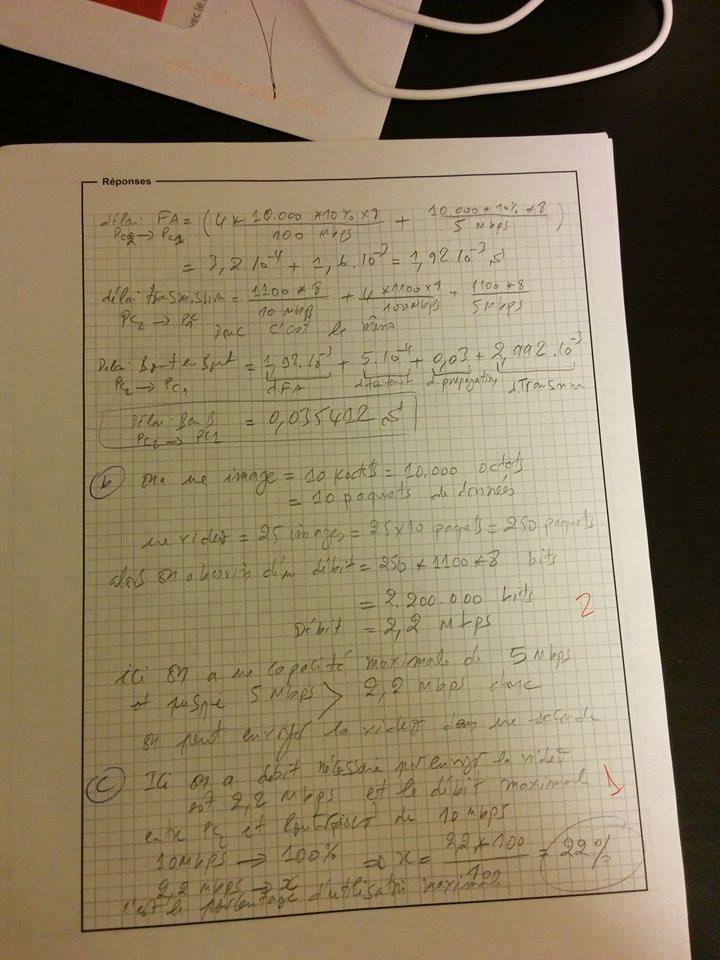 vec le
Réponses
délai FA = (4 * 10.000 * 10% * 8 / 100 Mbps + 10.000 * 10% * 8 / 5 Mbps)
PC2 → PC1
= 3,2.10^-4 + 1,6.10^-3 = 1,92.10^-3 s
délai transmission = 1100 * 8 / 10 Mbps + 4 * 1100 * 8 / 100 Mbps + 1100 * 8 / 5 Mbps
PC2 → PC1 Donc c'est le même
Delai Bout en Bout = 1,92.10^-3 + 5.10^-4 + 0,03 + 2,992.10^-3
PC2 → PC1 d.FA d.propagation d.Transm
Délai B en B = 0,035412 s
PC2 → PC1
b on a une image = 10 koctets = 10.000 octets
= 10 paquets de données
une video = 25 images = 25 x 10 paquets = 250 paquets
alors on a besoin d'un débit = 250 * 1100 * 8 bits
= 2.200.000 bits
Débit = 2,2 Mbps 2
ici on a une capacité maximale de 5 Mbps
et puisque 5 Mbps > 2,2 Mbps donc
on peut envoyer la video dans une seconde
c Ici on a débit nécessaire pr envoyer la video
est 2,2 Mbps et le débit maximale 1
entre PC2 et de 10 Mbps
10 Mbps → 100% => x = 22 * 100 / 100 = 22%
2,2 Mbps → x
c'est le pourcentage d'utilisation maximale